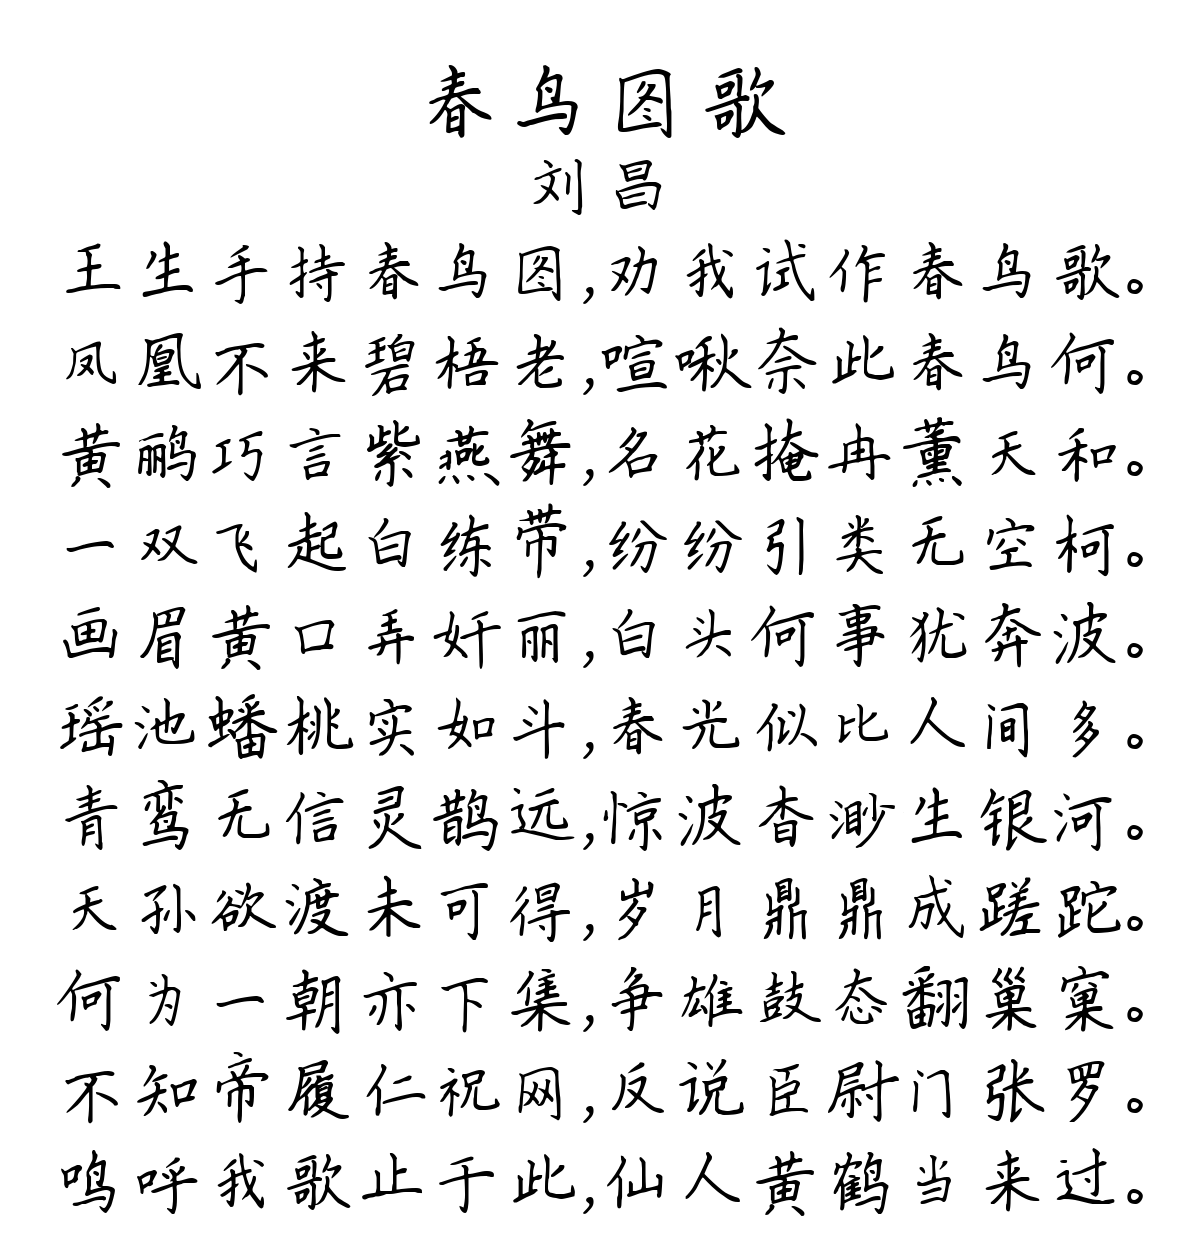 春鸟图歌
刘昌
王生手持春鸟图,劝我试作春鸟歌。
凤凰不来碧梧老,喧啾奈此春鸟何。
黄鹂巧言紫燕舞,名花掩冉薰天和。
一双飞起白练带,纷纷引类无空柯。
画眉黄口弄奸丽,白头何事犹奔波。
瑶池蟠桃实如斗,春光似比人间多。
青鸾无信灵鹊远,惊波杳渺生银河。
天孙欲渡未可得,岁月鼎鼎成蹉跎。
何为一朝亦下集,争雄鼓态翻巢窠。
不知帝履仁祝网,反说臣尉门张罗。
鸣呼我歌止于此,仙人黄鹤当来过。